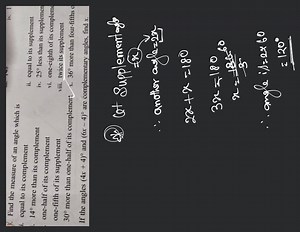 3. Find the measure of an angle which is
i. equal to its complement
ii. equal to its supplement
14° more than its complement
iv. 25° less than its supplement
one-half of its complement
vi. one-eighth of its complem
one-fifth of its supplement
viii. twice its supplement
30° more than one-half of its complement
x. 36° more than four-fifths o
If the angles (4x + 4)° and (6x - 4)° are complementary angles, find x
Let Supplement
∴ another angle = 2x
2x + x = 180
3x = 180
x = 60
∴ angle is = 2x60
= 120°